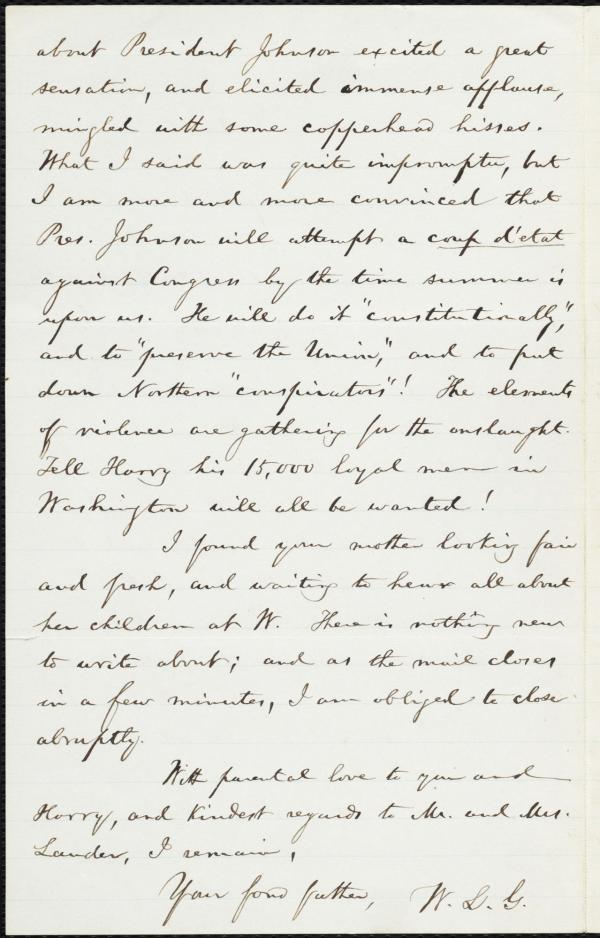 about President Johnson excited a great
sensation, and elicited immense applause,
mingled with some copperhead hisses.
What I said was quite impromptu, but
I am more and more convinced that
Pres. Johnson will attempt a coup d'etat
against Congress by the time summer is
upon us. He will do it "constitutionally,"
and to "preserve the Union," and to put
down Northern "conspirators"! The elements
of violence are gathering for the onslaught.
Tell Harry his 15,000 loyal men in
Washington will all be wanted!
I found your mother looking fair
and fresh, and waiting to hear all about
her children at W. There is nothing new
to write about; and as the mail closes
in a few minutes, I am obliged to close
abruptly.
With parental love to you and
Harry, and kindest regards to Mr. and Mrs.
Lander, I remain,
Your fond father, W. L. G.